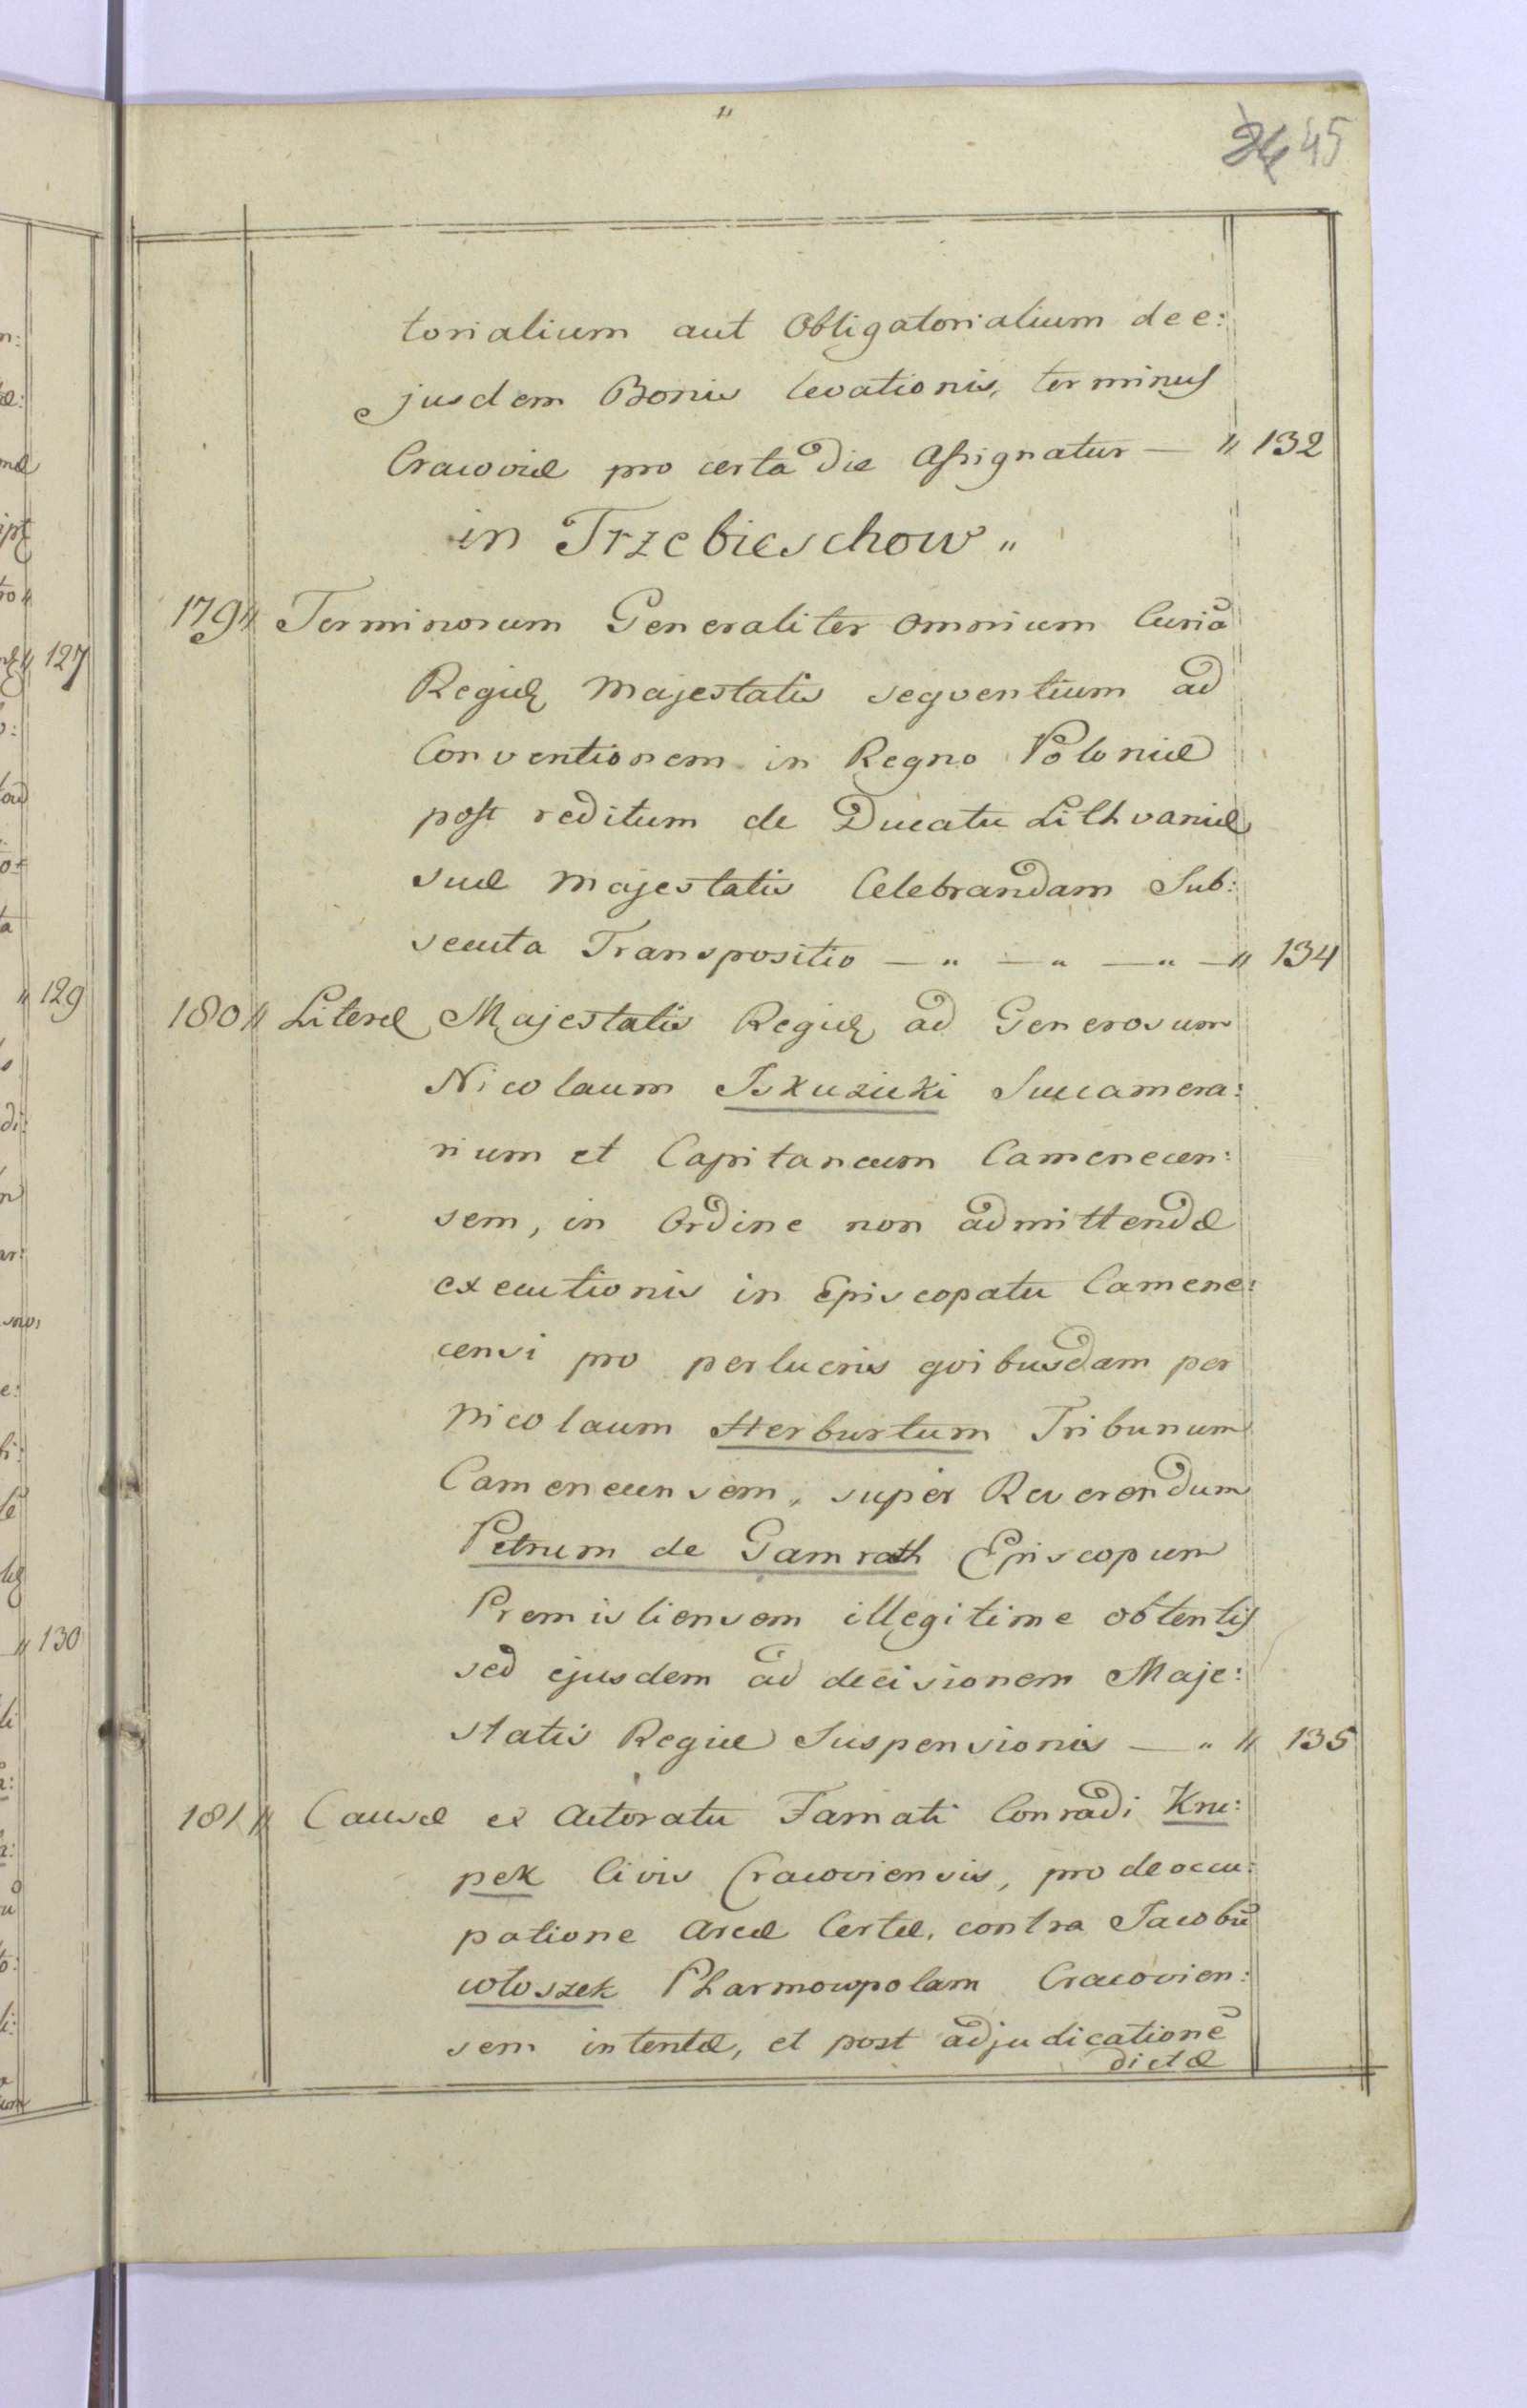 45
torialium aut Obligatorialium de e:
jusdem Bonis levationis, terminus
Cracoviæ pro certa die Assignatur — " 132
in Trzebieschow "
179 " Terminorum Generaliter omnium Curiã
Regiæ Majestatis seqventium ad
Conventionem in Regno Poloniæ
post reditum de Ducatu Lithvaniæ
suæ Majestatis Celebrandam Sub:
secuta Transpositio — " — " — " — " 134
180 " Literæ Majestatis Regiæ ad Generosum
Nicolaum Iskrzicki Succamera:
rium et Capitaneum Camenecen:
sem, in Ordine non admittendæ
executionis in Episcopatu Camene:
censi pro perlucris qvibusdam per
Nicolaum Herburtum Tribunum
Camenecensem, super Reverendum
Petrum de Gamrath Episcopum
Premisliensem illegitime obtentis
sed ejusdem ad decisionem Maje:
statis Regiæ Suspensionis — " " 135
181 " Causæ ex Actoratu Famati Conradi Kru:
pek Civis Cracoviensis, pro deoccu:
patione Areæ Certæ, contra Jacobũ
Woszek Pharmocopolam Cracovien:
sem intentæ, et post adjudicationẽ
dictæ
127
129
130